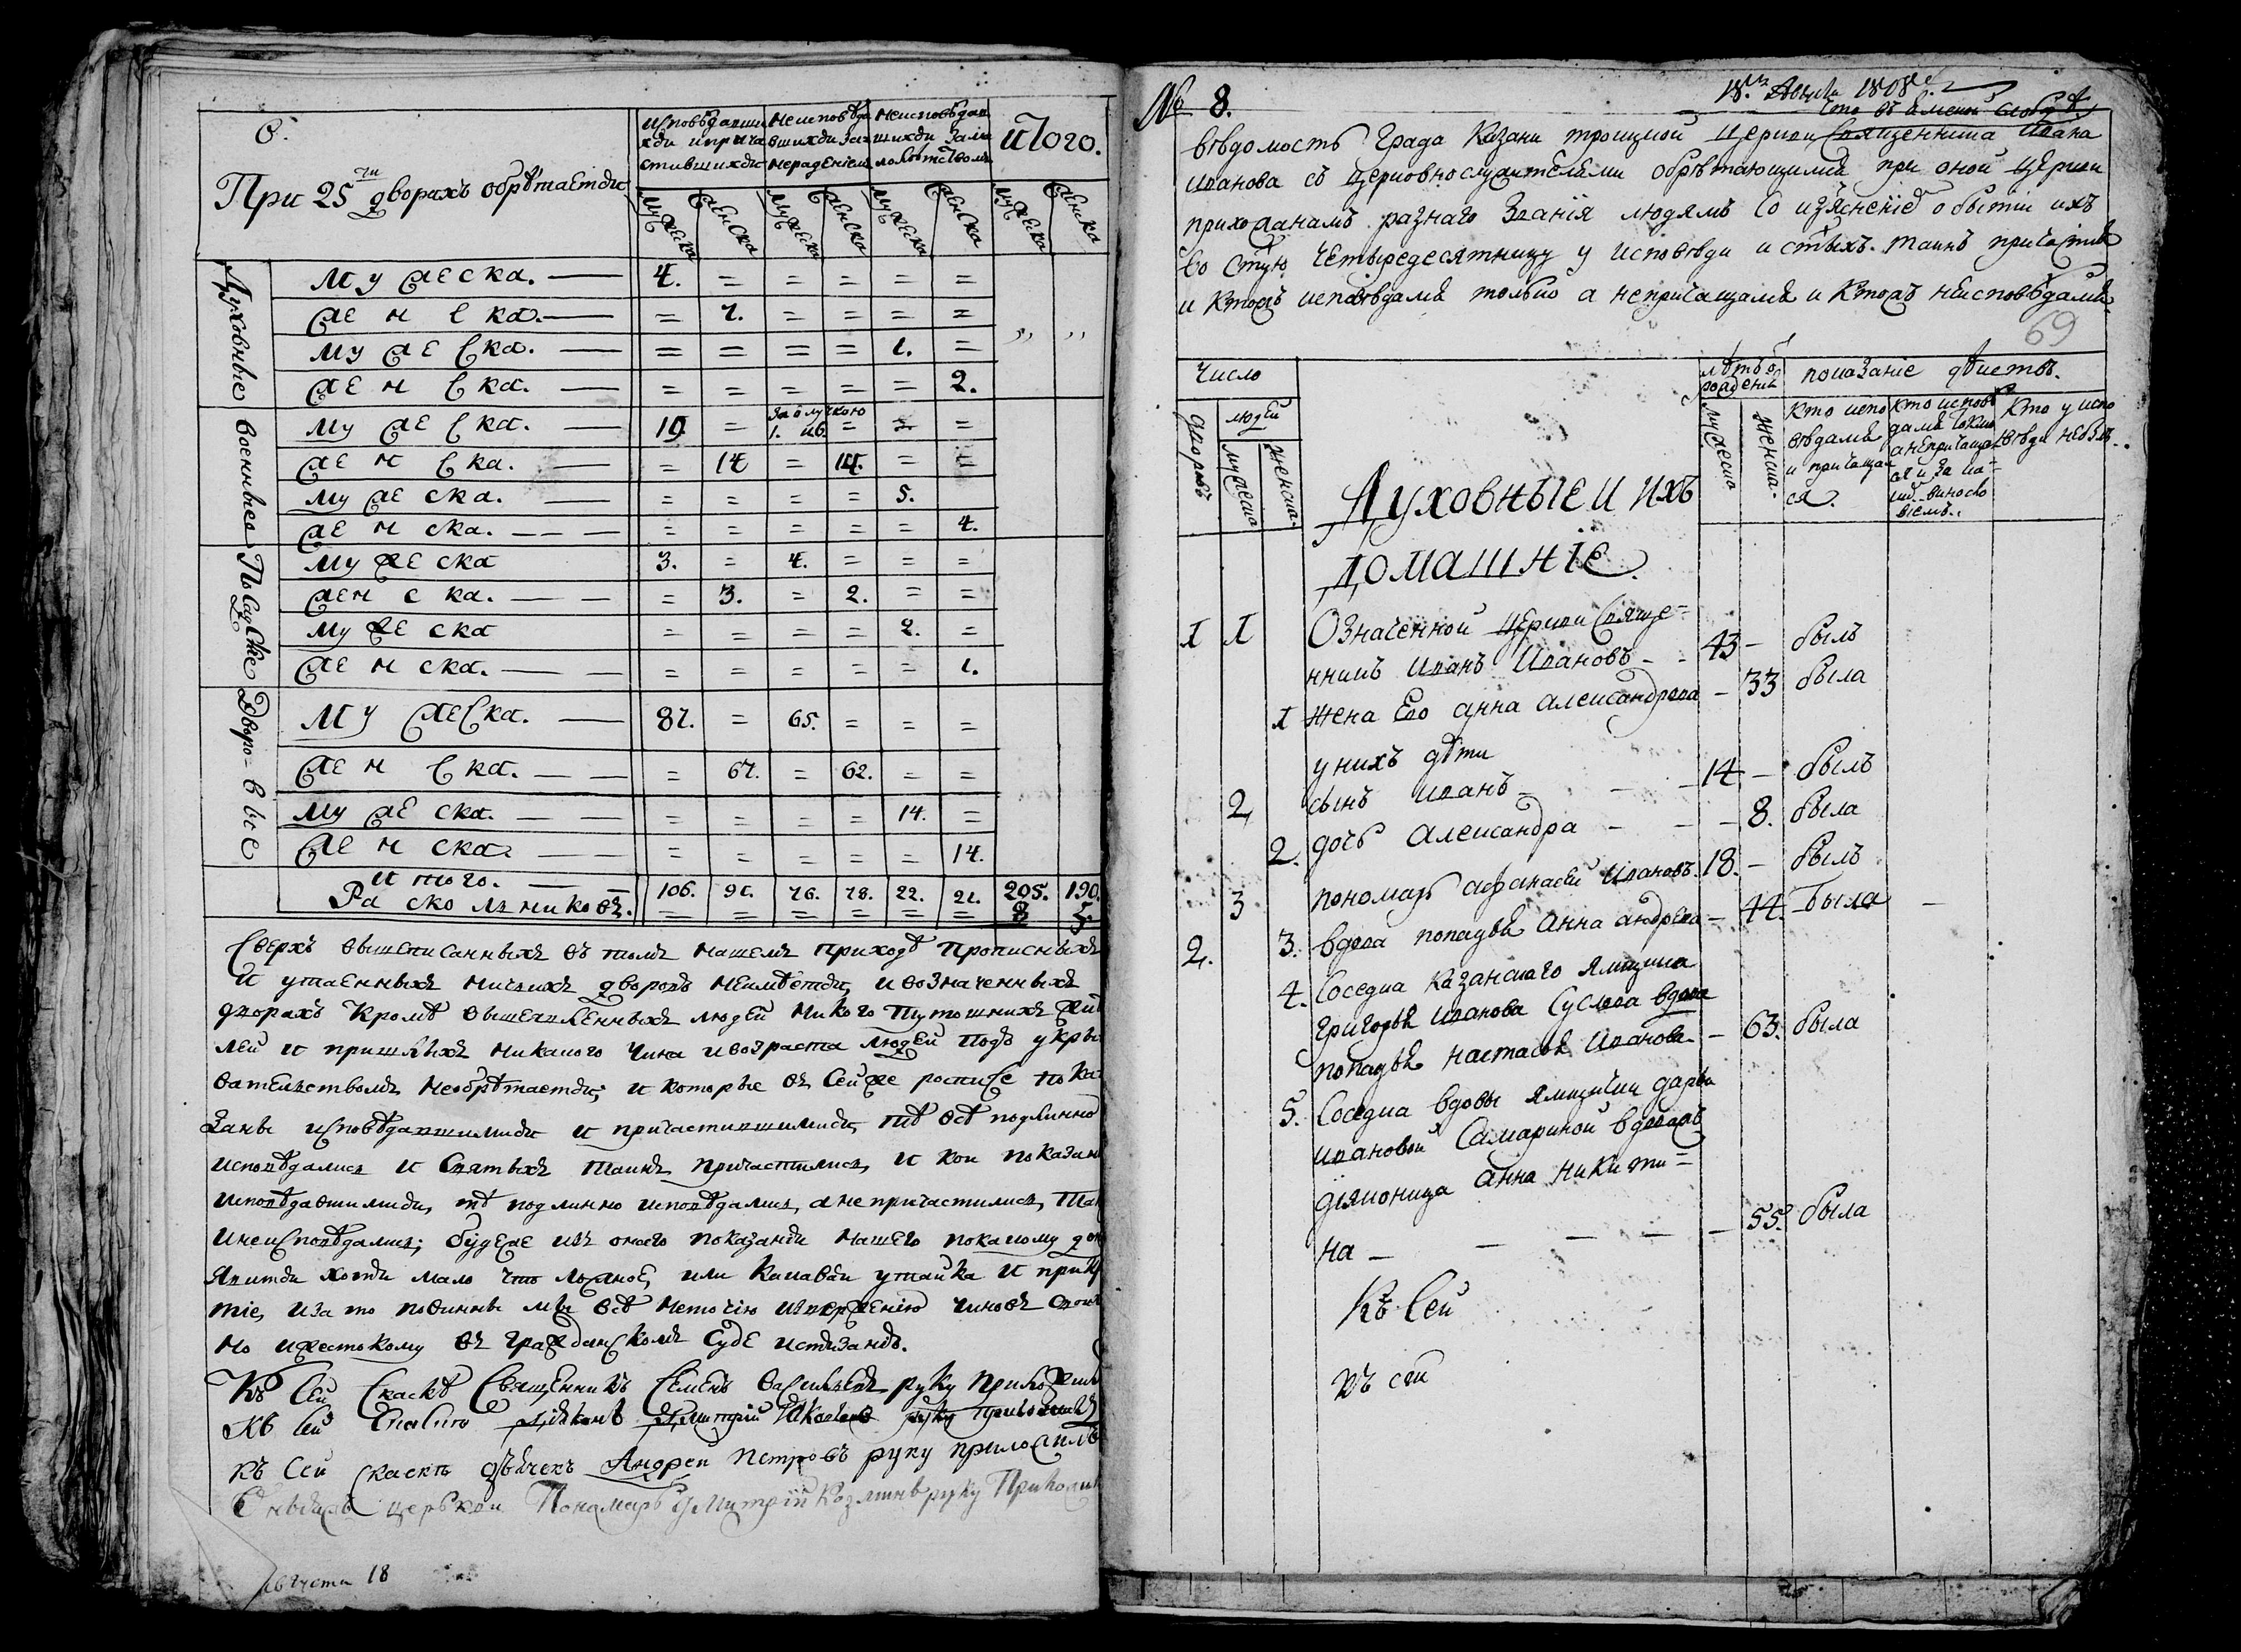 При 25ти дворахъ обрѣтается
исповѣдавши
хся и прича
стившихся
неисповѣда
вшихся за
нерадениемъ
неисповѣдав
шихся за ма
лолѣтствомъ
итого.
мужеска женска мужеска женска мужеска женска мужеска женска
Духовные
мужеска. 4. = = = = =
женска. = 7. = = = =
мужеска. = = = = 1. =
женска. = = = = = 2.
военные
мужеска. =
женска. = 14 = 14. = =
мужеска. = = = = 5.
женска. = = = = = 4.
Посадские
мужеска 3. = 4. = = =
женска. = 3. = 2. = =
мужеска = = = = 2. =
женска. = = = = = 1.
Дворовые
мужеска. 87. = 65. = = =
женска. = 67. = 62. = =
мужеска. = = = = 14. =
женска. = = = = = 14.
итого. 106. 91. 76. 78. 22. 21. 205. 190.
Расколниковъ. = = = = = =
Сверхъ вышеписанныхъ въ томъ нашемъ приходѣ прописныхъ
и утаенныхъ дворовъ неимѣется, и возначенныхъ
дворахъ кромѣ людей никого тутошнихъ жи
лей и пришлыхъ никакого чина и возраста людей подъ укры
вателствомъ необрѣтается; и которые въ сей же росписе пока
заны исповѣдавшимися и причастившимися, тѣ всѣ подлинно
исповѣдалися и Святыхъ таинъ причастилися, и кои показан
исповѣдавшимися, тѣ подлинно исповѣдалися, а не причастилися,
и неисповѣдалися; будеже изъ оного показания нашего покакому
явится хотя мало что ложное, или какаваи утаика и прикр
тие, и за то повинны мы всѣ неточию извержению чиновъ
но и жестокому въ гражданскомъ суде истязанъ.
Къ сей скаскѣ Священникъ Семенъ Васильевъ руку прилож
Къ сей диаконъ Димитрий руку приложилъ
къ сей скаске дьячекъ Андрей Петровъ руку приложилъ
церькви Пономарь Димитрий Козминъ руку Приложил
августа 18
№ 8.
18. Августа 1808
вѣдомость Града Казани троицкой церкви Священника Ивана
Иванова съ церковнослужителями обрѣтающимися при оной церкви
прихожанамъ разнаго звания людямъ со изъяснение о бытии ихъ
во стую четыредесятницу у исповѣди и стыхъ таинъ причастия
и ктожъ исповѣдался только а непричащался и ктожъ неисповѣдался.
69
Число
дворовъ
людей
мужеска
женска.
Духовные и ихъ
домашние.
лѣтъ от
рождения
мужеска
женска.
показание действ.
кто испо
вѣдался
и прича́ща
ся.
кто исповѣ
дался токмо
а непричащал
ся и за ка
ким виносло
виемъ.
Кто у испо
вѣди небыл.
1 1 Означенной церкви Свяще=
нникъ Иванъ Ивановъ 43 былъ
1 жена Его Анна Александрова 33 была
у нихъ дѣти
2 сынъ Иванъ 14 былъ
2. дочь Александра 8. была
3 пономарь Афанасей Ивановъ. 18. былъ
2. 3. вдова попадья Анна Андреева 44. была
4. Соседка Казанскаго ямщика
Григорья Иванова Суслова вдова
попадья Настасья Иванова. 63. была
5. Соседка вдовы ямщички Дарьи
Ивановой Самариной вдова
дияконица Анна Никити=
на 55. была
Къ сей
Къ сей